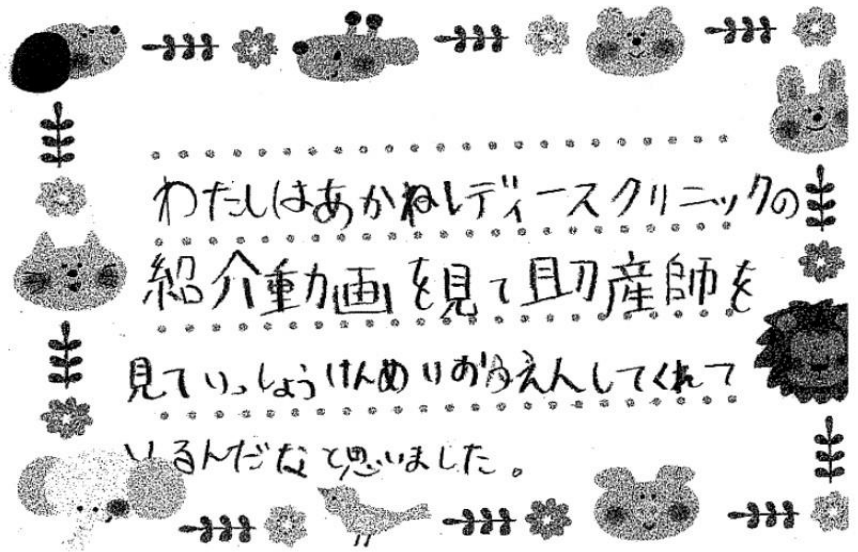 わたしはあかねレディースクリニックの
紹介動画を見て助産師を
見ていっしょうけんめいおうえんしてくれて
いるんだなと思いました。